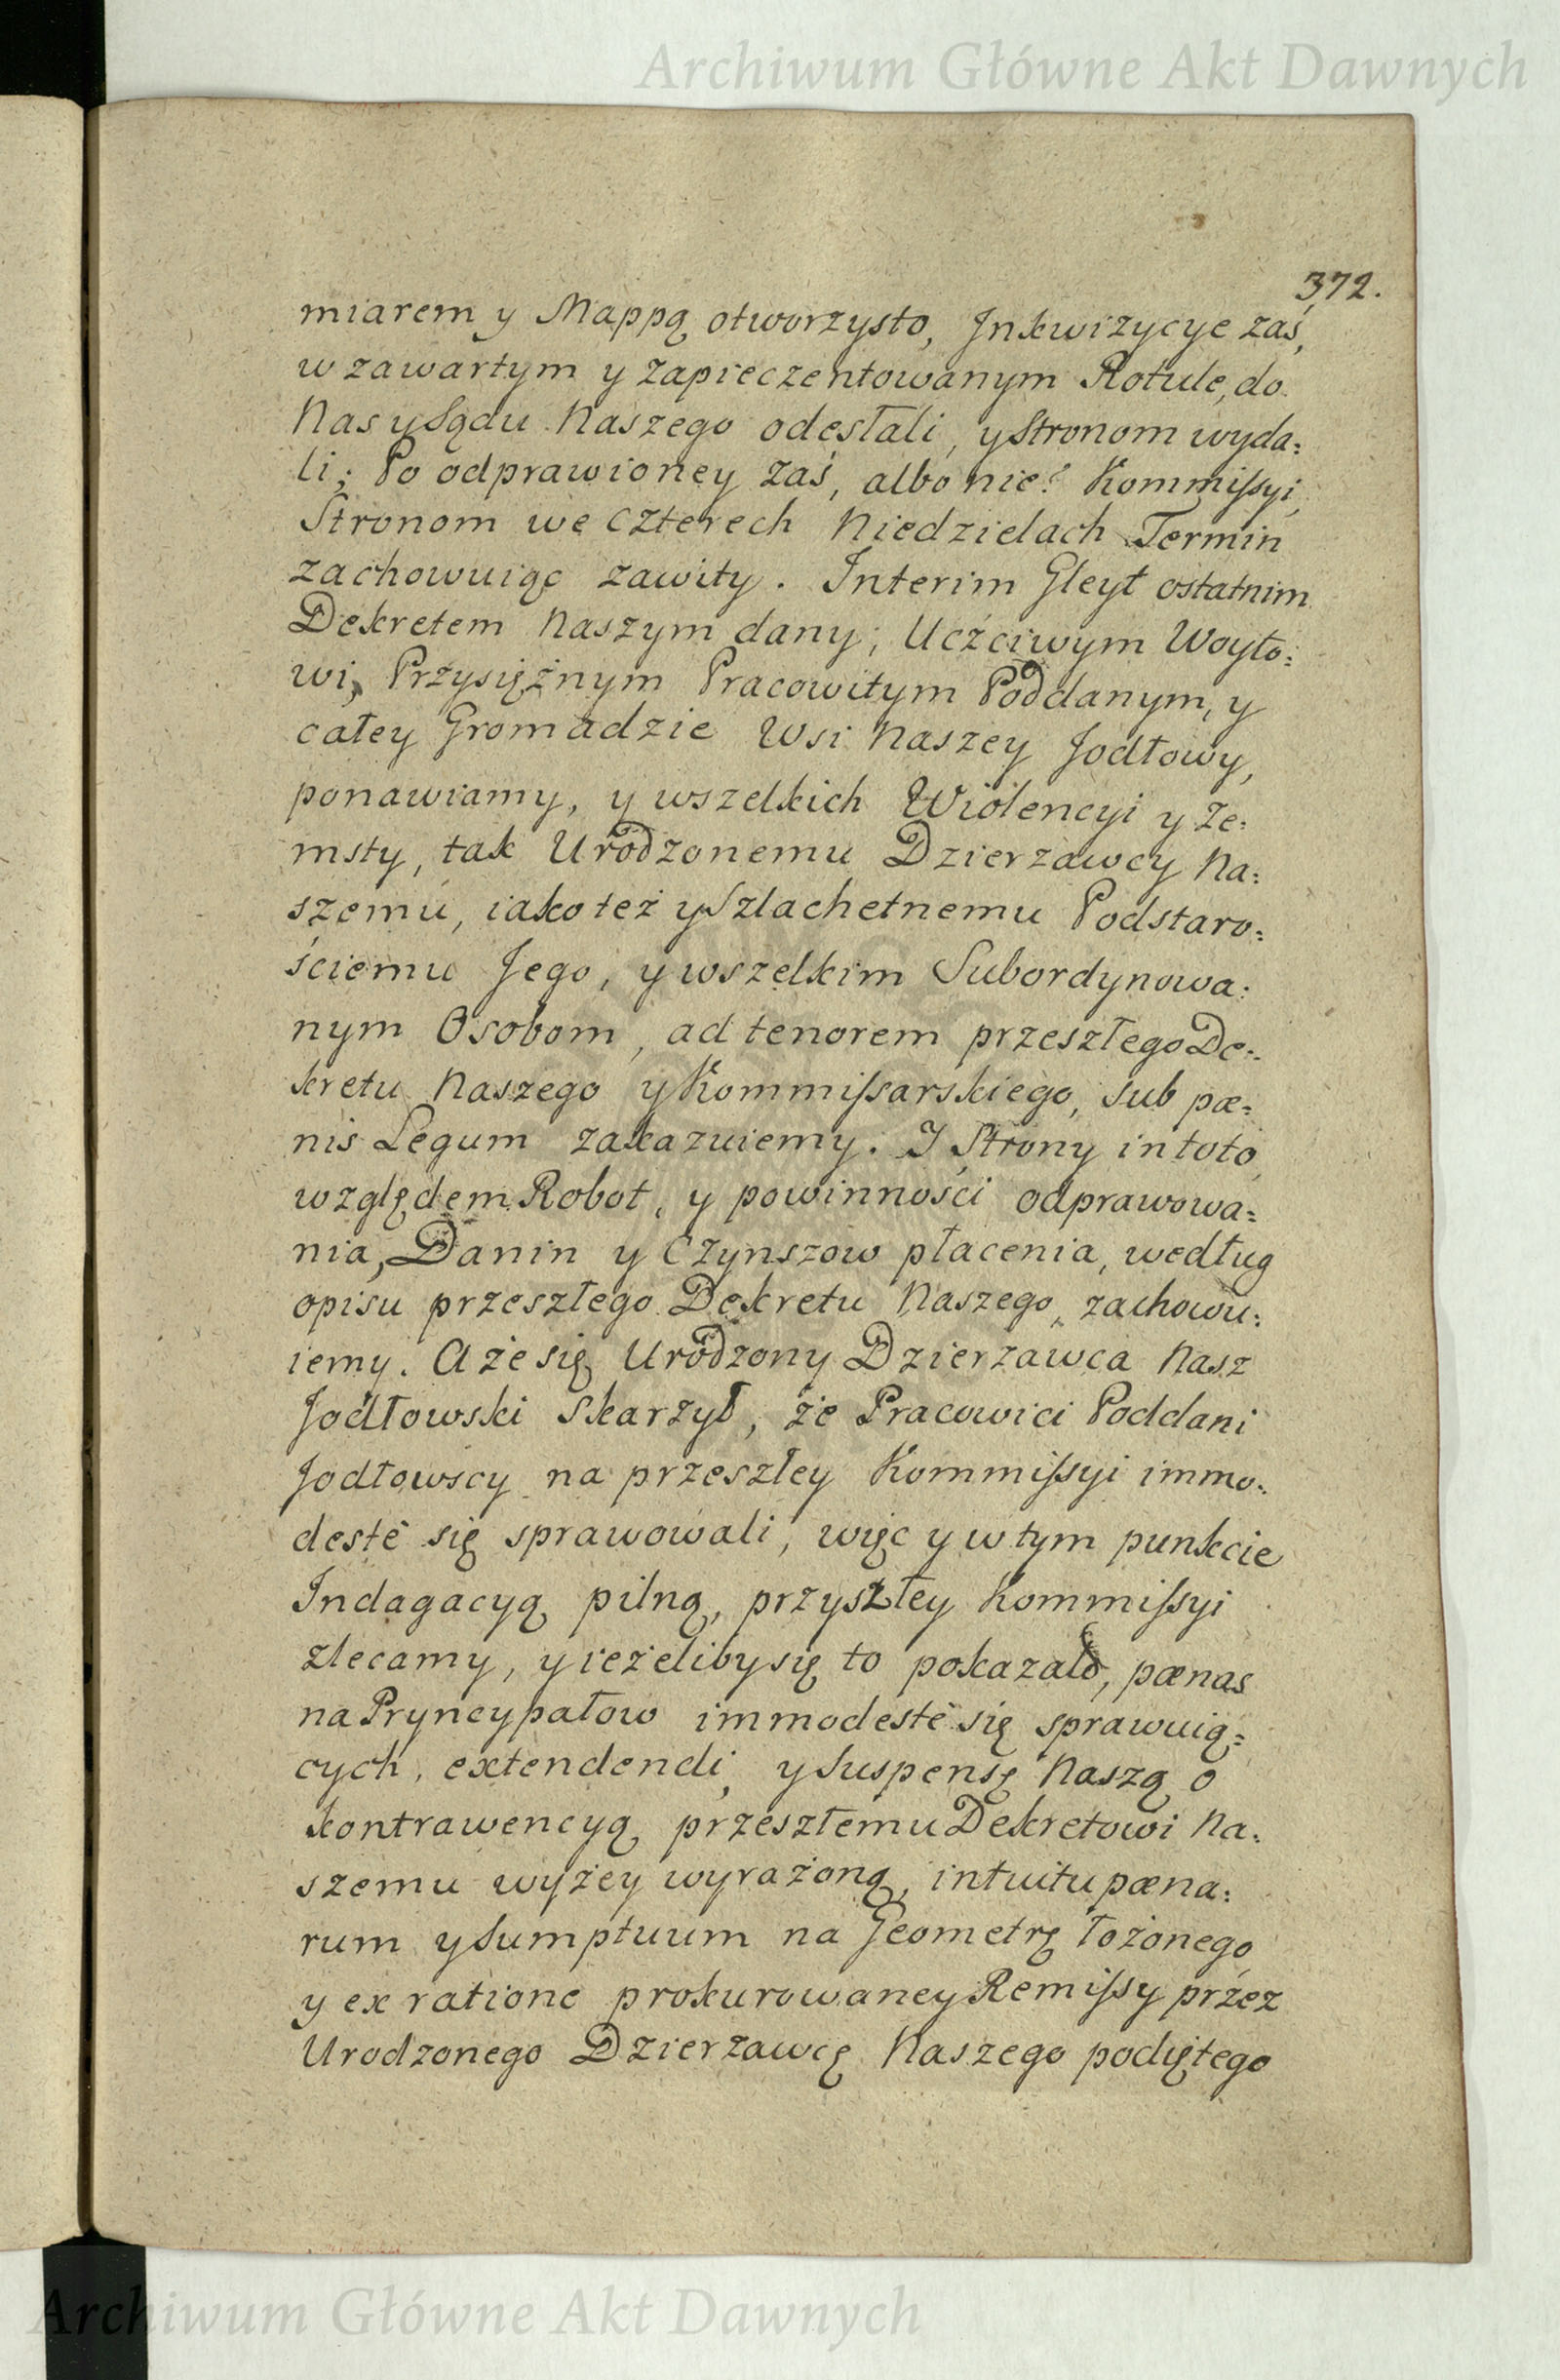 Archiwum Główne Akt Dawnych
372.
miarem y Mappą otworzysto, Jnkwizycye zaś,
w zawartym y zapieczentowanym Rotule, do
Nas y Sądu Naszego odesłali, y Stronom wyda:
li; Po odprawioney zaś, albo nie? Kommiſsyi,
Stronom we czterech Niedzielach Termin
zachowuiąc zawity. Interim Gleyt ostatnim
Dekretem Naszym dany; Uczciwym Woyto:
wi, Przysiężnym Pracowitym Poddanym, y
całey Gromadzie Wsi Naszey Jodłowy,
ponawiamy, y wszelkich Wiolencyi y Ze:
msty, tak Urodzonemu Dzierzawcy Na:
szemu, iako też y Szlachetnemu Podstaro:
ściemu Jego, y wszelkim Subordynowa:
nym Osobom, ad tenorem przeszłego De:
kretu Naszego y Kommiſsarskiego, sub pœ:
nis Legum zakazuiemy. I Strony in toto
względem Robot, y powinności odprawowa:
nia, Danin y Czynszow płacenia, według
opisu przeszłego Dekretu Naszego, zachowu:
iemy. A że się Urodzony Dzierzawca Nasz
Jodłowski skarzył, że Pracowici Poddani
Jodłowscy na przeszłey Kommiſsyi immo:
destè się sprawowali, więc y w tym punkcie
Indagacyą pilną, przyszłey Kommiſsyi
zlecamy, y ieżeliby się to pokazało, pœnas
na Pryncypałow immodestè się sprawuią:
cych, extendendi, y Suspensę Naszą o
kontrawencyą przeszłemu Dekretowi Na:
szemu wyżey wyrażoną, intuitu pœna:
rum y Sumptuum na Geometrę łożonego
y ex ratione prokurowaney Remiſsy przez
Urodzonego Dzierzawcę Naszego podiętego
Archiwum Główne Akt Dawnych